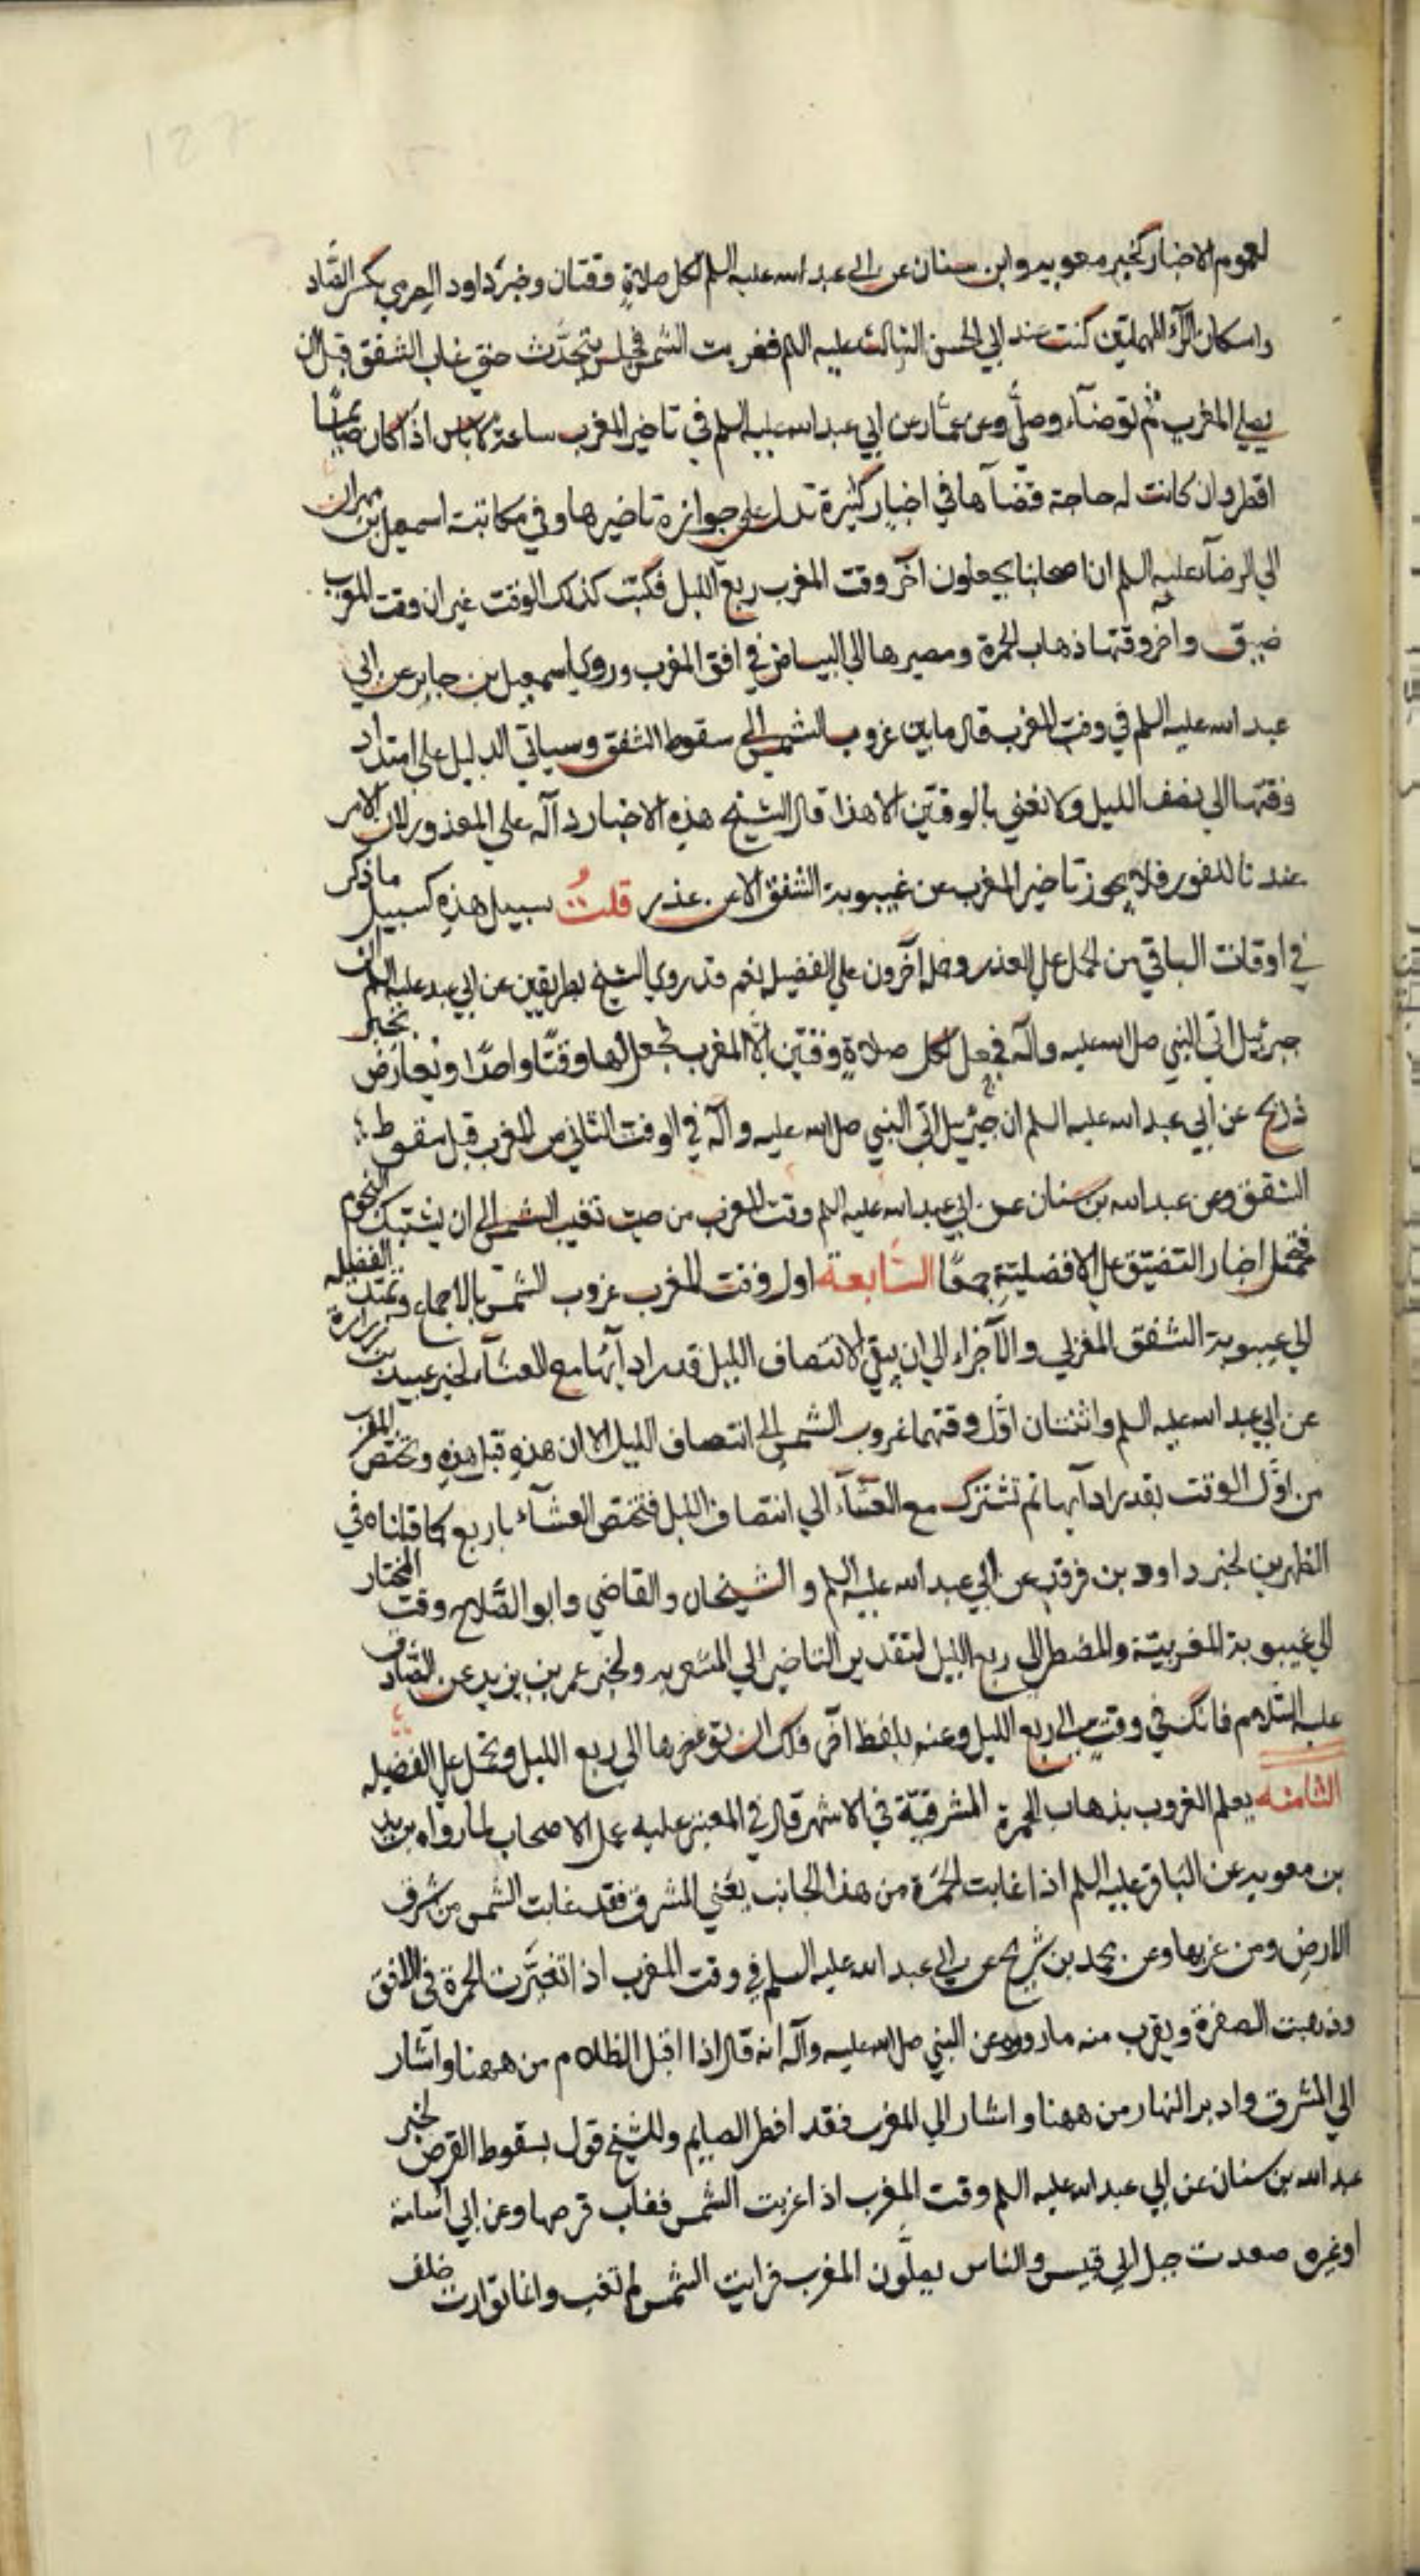 لعموم الاخبار كخبر معوية وابن سنان عن ابي عبد الله عليه السلم لكل صلاة وقتان وخبر داود الصرمي بكسر الصاد
واسكان الرآء المهملتين كنت عند ابي الحسن الثالث عليه السلم فغربت الشمس فجلس يتحدث حتى غاب الشفق قبل ان
يصلي المغرب ثم توضآء وصلى وعن عمار عن ابي عبد الله عليه السلم في تاخير المغرب ساعة لا باس اذا كان صايمًا
افطر وان كانت له حاجة قضآها في اخبار كثيرة تدل على جواز تاخيرها وفي مكاتبة اسمعيل بن مهران
الى الرضا عليه السلم ان اصحابنا يجعلون آخر وقت المغرب ربع الليل فكتب كذلك الوقت غير ان وقت المغرب
ضيق واخر وقتها ذهاب الحمرة ومصيرها الى البياض في افق المغرب وروى اسمعيل بن جابر عن ابي
عبد الله عليه السلم في وقت المغرب قال ما بين غروب الشمس الى سقوط الشفق وسياتي الدليل على امتداد
وقتها الى نصف الليل ولا نعني بالوقتين الا هذا قال الشيخ هذه الاخبار دآلة على المعذور لان الامر
عندنا للفور فلا يجوز تاخير المغرب عن غيبوبة الشفق الا عن عذر قلتُ سبيل هذه كسبيل ما ذكر
في اوقات الباقي من الحمل على العذر وحمله آخرون على الفضيلة نعم قد روى الشيخ بطريقين عن ابي عبد الله عليه السلم ان
جبرئيل اتى النبي صلى الله عليه وآله فجعل لكل صلاة وقتين الا المغرب فجعل لها وقتًا واحدًا ويعارض بخبر
ذريح عن ابي عبد الله عليه السلم ان جبرئيل اتى النبي صلى الله عليه وآله في الوقت الثاني من المغرب قبل سقوط
الشفق وعن عبد الله بن سنان عن ابي عبد الله عليه السلم وقت المغرب من حيث تغيب الشمس الى ان يشتبك النجوم
فتحمل اخبار التضيق على الافضلية جمعًا السابعة اول وقت المغرب غروب الشمس بالاجماع وتمتد الفضيلة
الى غيبوبة الشفق المغربي والاجزاء الى ان يبقى لانتصاف الليل قدر ادآئها مع العشآء لخبر عبيد بن زرارة
عن ابي عبد الله عليه السلم واثنتان اول وقتهما غروب الشمس الى انتصاف الليل الا ان هذه قبل هذه وتختص المغرب
من اول الوقت بقدر ادآئها ثم تشترك مع العشآء الى انتصاف الليل فتختص العشآء باربع كما قلناه في
الظهرين لخبر داود بن فرقد عن ابي عبد الله عليه السلم والشيخان والقاضي وابو الصلاح وقت المختار
الى غيبوبة المغربية والمضطر الى ربع الليل لتقدير التاخير الى المشعر به ولخبر عمر بن يزيد عن الصادق
عليه السلام فانك في وقت الى ربع الليل وعنه بلفظ آخر فلك ان تؤخرها الى ربع الليل وتحمل على الفضيلة
الثامنة يعلم الغروب بذهاب الحمرة المشرقية في الاشهر قال في المعتبر عليه عمل الاصحاب لما رواه بريد
بن معوية عن الباقر عليه السلم اذا غابت الحمرة من هذا الجانب يعني المشرق فقد غابت الشمس من شرق
الارض ومن غربها وعن محمد بن شريح عن ابي عبد الله عليه السلم في وقت المغرب اذا تغيرت الحمرة في الافق
وذهبت الصفرة ويقرب منه ما رووه عن النبي صلى الله عليه وآله انه قال اذا اقبل الظلام من ههنا واشار
الى المشرق وادبر النهار من ههنا واشار الى المغرب فقد افطر الصايم وللشيخ قول بسقوط القرص لخبر
عبد الله بن سنان عن ابي عبد الله عليه السلم وقت المغرب اذا غربت الشمس فغاب قرصها وعن ابي اسامة
او غيره صعدت جبل ابي قبيس والناس يصلون المغرب فرايت الشمس لم تغب وانما توارت خلف